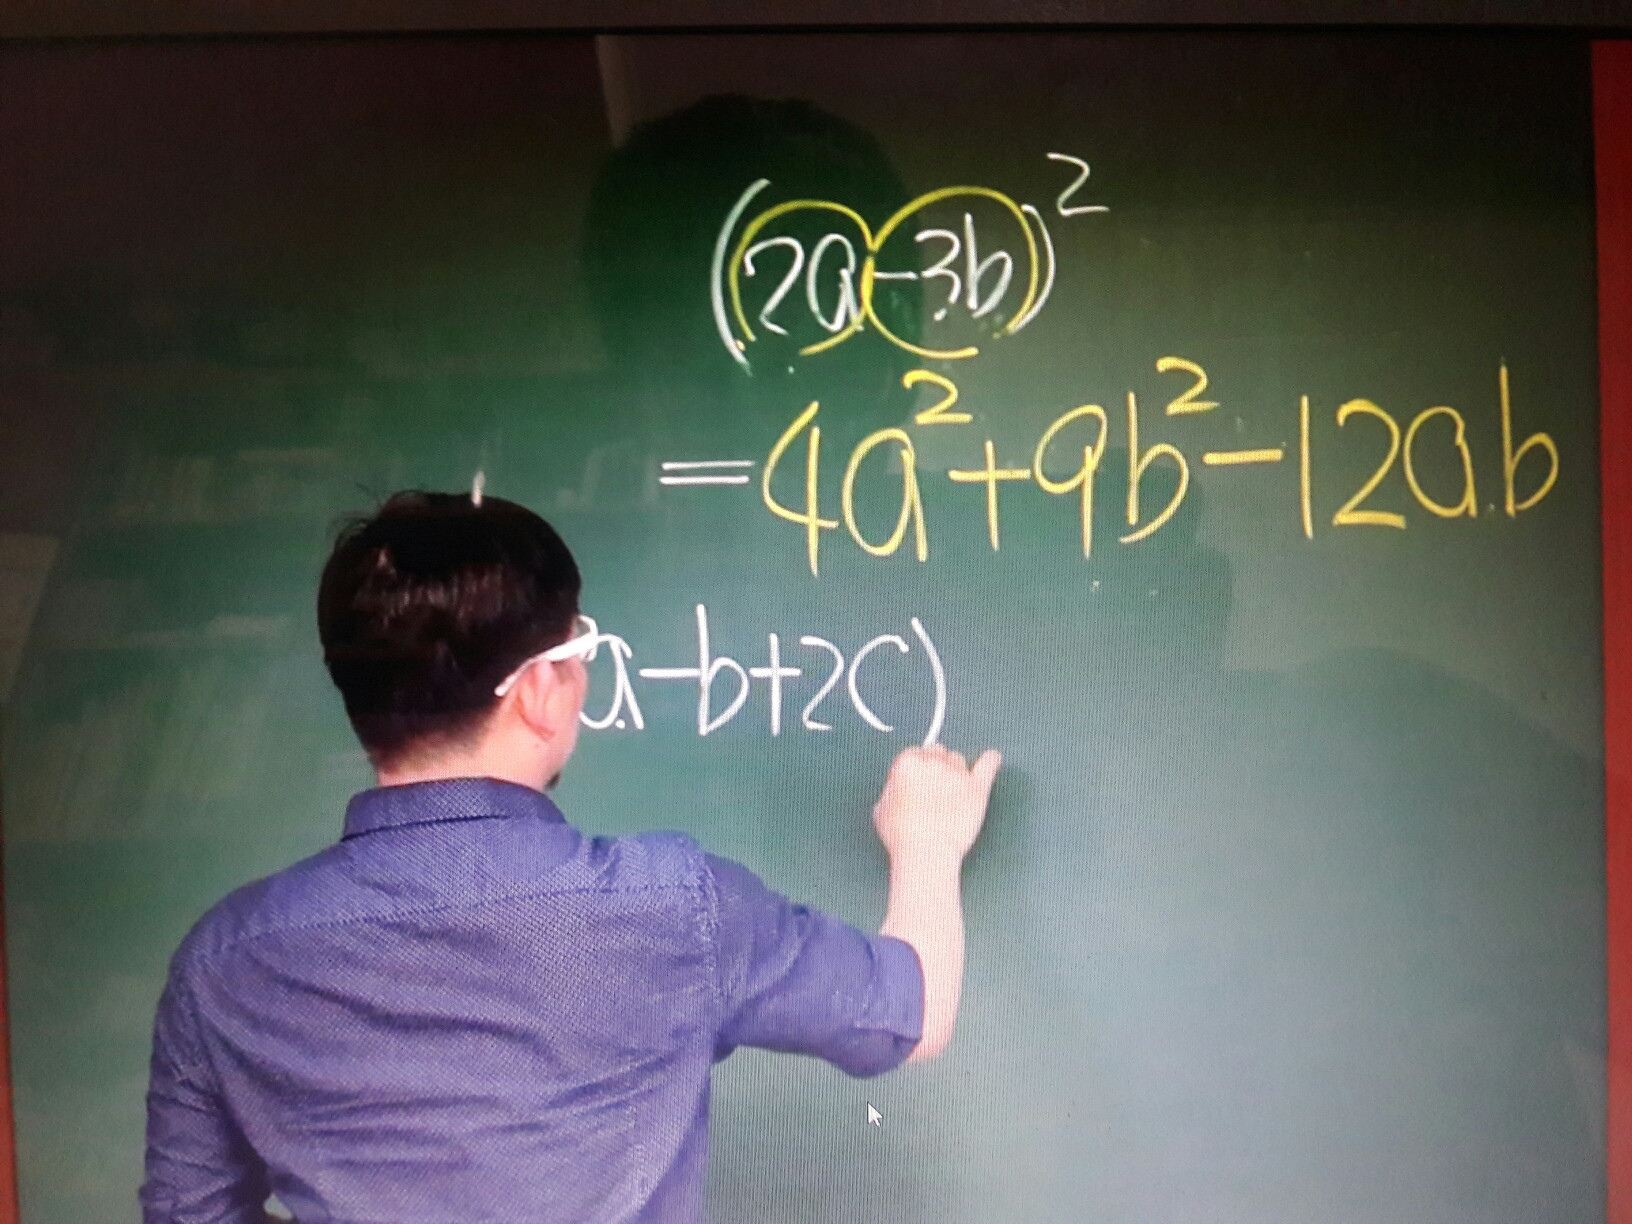 (2a-3b)²
=4a²+9b²-12ab
a-b+2c)